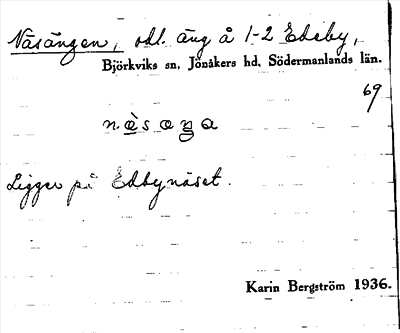 Näsängen, odl. äng å 1-2 Edeby,
Björkviks sn, Jönåkers hd, Södermanlands län.
69
Ligger på Edbynäset.
Karin Bergström 1936.